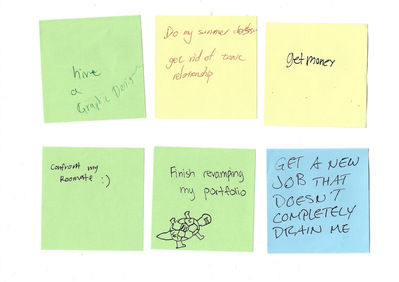 hire
a
Graphic Design
Do my summer
get rid of toxic
relationship
get money
Confront my
Roomate :)
Finish revamping
my portfolio
GET A NEW
JOB THAT
DOESN'T
COMPLETELY
DRAIN ME